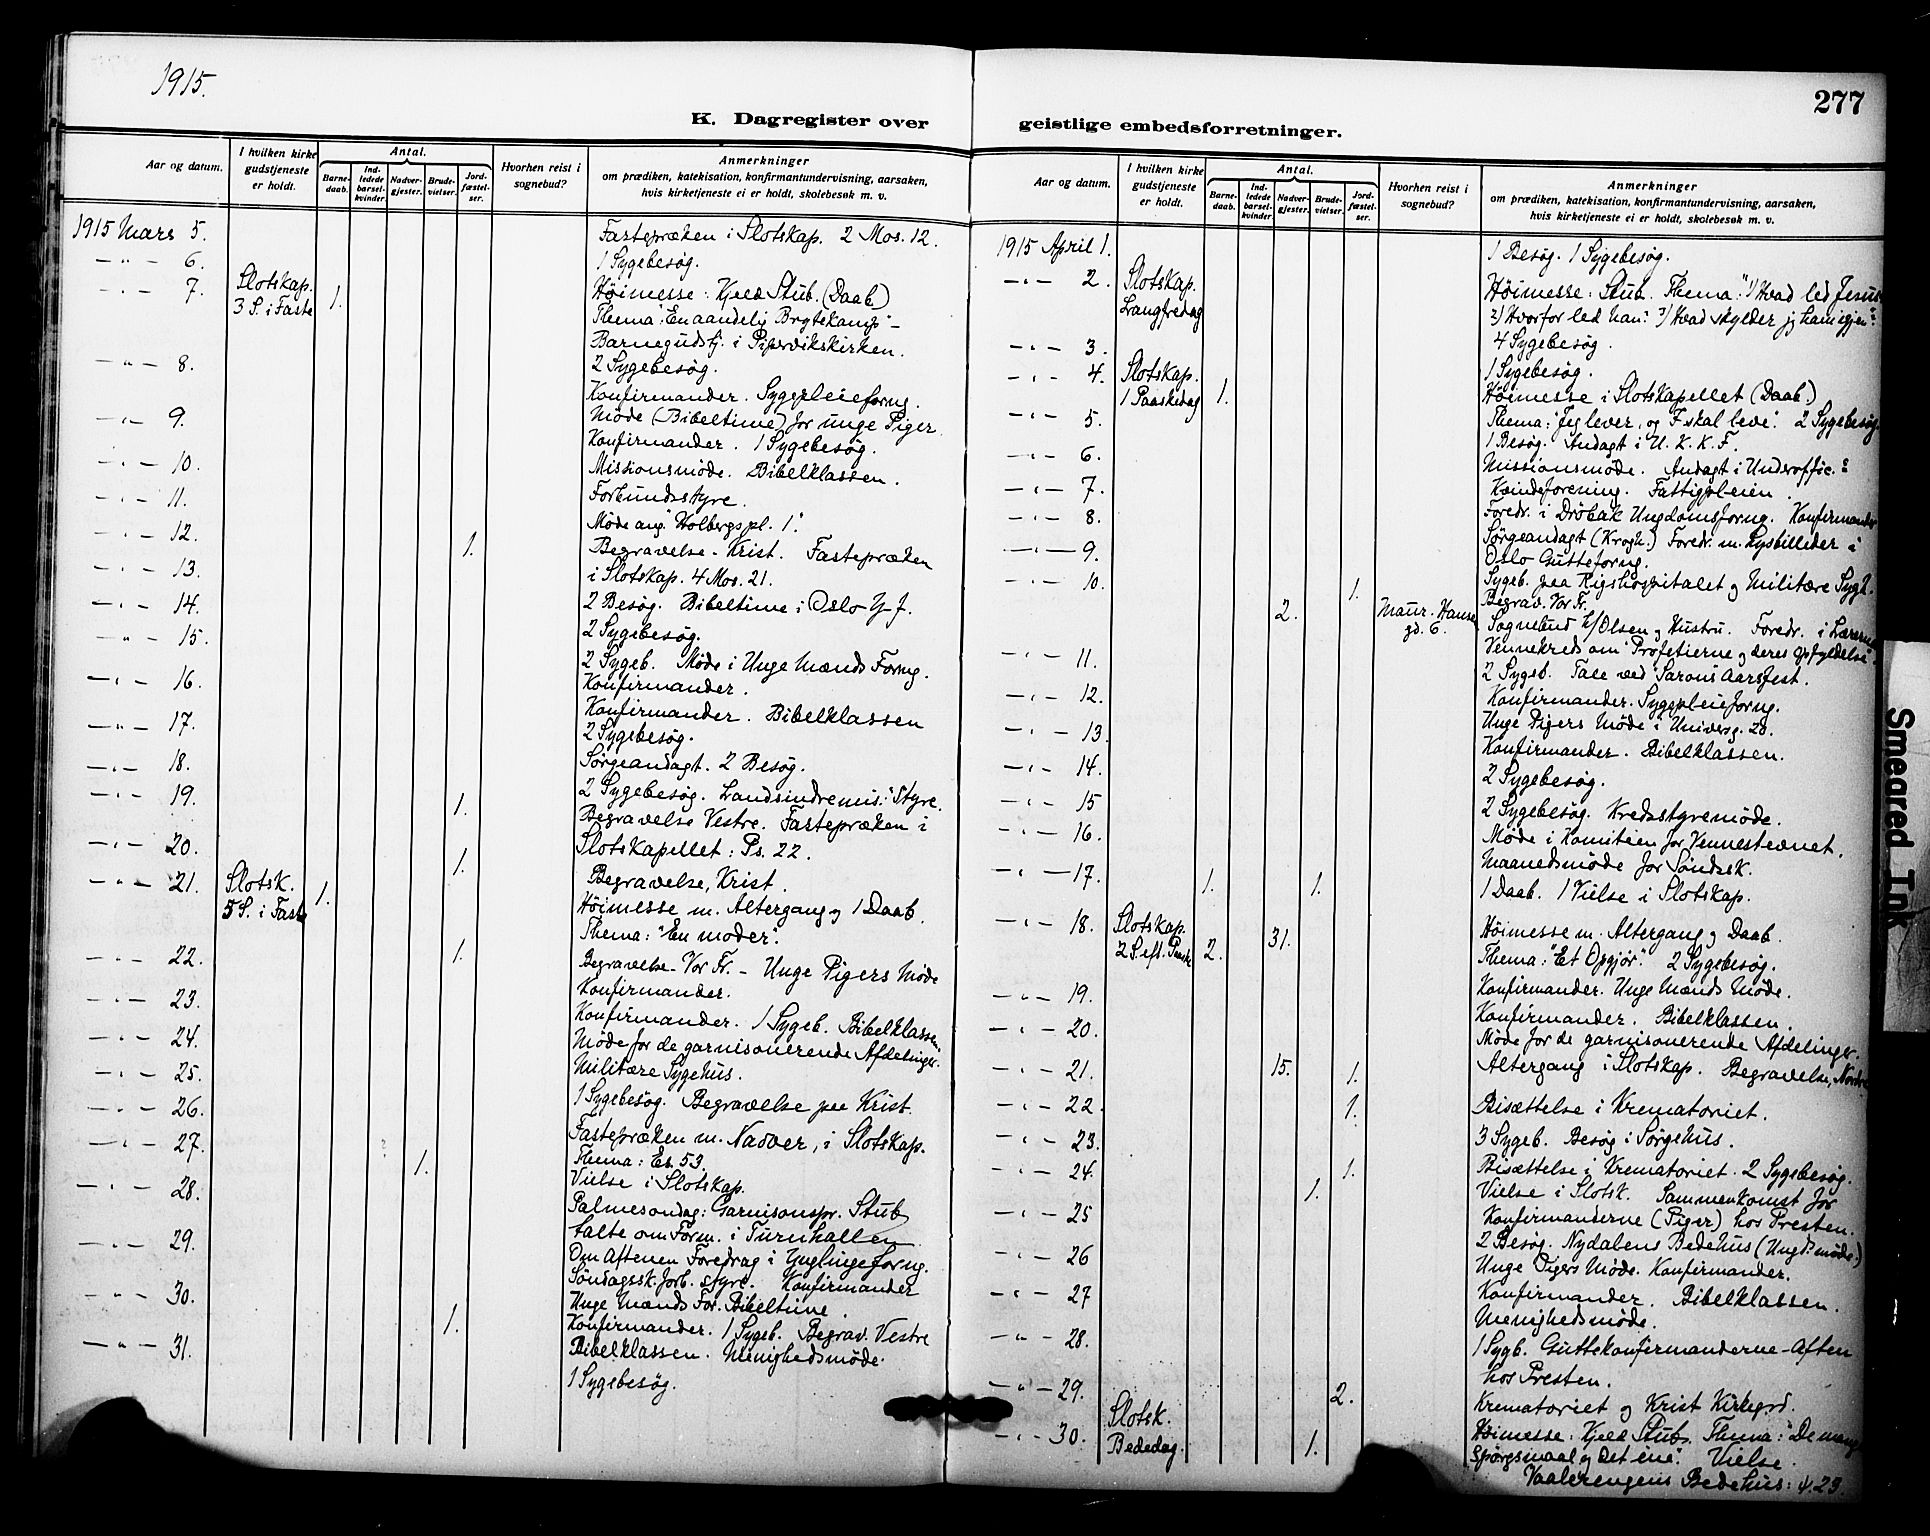 1915.
277
K. Dagregister over geistlige embedsforretninger.
Aar og datum.
I hvilken kirke gudstjeneste er holdt.
Antal.
Barnedaab.
Indledede barselkvinder.
Nadvergjester.
Brudevielser.
Jordfæstelser.
Hvorhen reist i sognebud?
Anmerkninger
om prædiken, katekisation, konfirmantundervisning, aarsaken,
hvis kirketjeneste ei er holdt, skolebesøk m. v.
1915 Mars 5.
Fastepræken i Slotskap. 2 Mos. 12.
— " — 6.
1 Sygebesøg.
— " — 7. Slotskap. 3 S. i Faste 1.
Høimesse: Kjeld Stub. (Daab)
Thema: "En aandelig Brytekamp" —
Barnegudstj. i Pipervikskirken.
— " — 8.
2 Sygebesøg.
Konfirmander. Sygepleieforng.
— " — 9.
Møde (Bibeltime) for unge Piger
Konfirmander. 1 Sygebesøg.
— " — 10.
Missionsmøde. Bibelklassen.
— " — 11.
Forbundsstyre.
Møde ang. Holbergspl. 1.
— " — 12. 1.
Begravelse - Krist. Fastepræken
i Slotskap. 4 Mos. 21.
— " — 13.
— " — 14.
2 Besøg. Bibeltime i Oslo Y. F.
2 Sygebesøg.
— " — 15.
2 Sygeb. Møde i Unge Mænds Forng.
Konfirmander.
— " — 16.
Konfirmander. Bibelklassen
— " — 17.
2 Sygebesøg.
— " — 18.
Sørgeandagt. 2 Besøg.
— " — 19. 1.
2 Sygebesøg. Landsindremis. Styre.
Begravelse Vestre. Fastepræken i
Slotskapellet: Ps. 22.
— " — 20. 1.
Begravelse, Krist.
— " — 21. Slotsk. 5 S. i Faste 1.
Høimesse m. Altergang og 1 Daab.
Thema: "En moder".
— " — 22. 1.
Begravelse - Vor Fr. - Unge Pigers Møde
Konfirmander.
— " — 23.
Konfirmander. 1 Sygeb. Bibelklassen.
— " — 24.
Møde for de garnisonerende Afdelinger.
— " — 25.
Militære Sygehus.
— " — 26.
1 Sygebesøg. Begravelse paa Krist.
Fastepræken m. Nadver, i Slotskap.
Thema: Es. 53.
— " — 27. 1.
Vielse i Slotskap.
— " — 28.
Palmesøndag: Garnisonspr. Stub
talte om Form. i Turnhallen
Om Aftenen Foredrag i Ynglingeforng.
— " — 29.
Søndagssk. forb. styre. Konfirmander
Unge Mænds For. Bibeltime.
— " — 30. 1.
Konfirmander. 1 Sygeb. Begrav. Vestre
Bibelklassen. Menighedsmøde.
— " — 31.
1 Sygebesøg.
Aar og datum.
I hvilken kirke gudstjeneste er holdt.
Antal.
Barnedaab.
Indledede barselkvinder.
Nadvergjester.
Brudevielser.
Jordfæstelser.
Hvorhen reist i sognebud?
Anmerkninger
om prædiken, katekisation, konfirmantundervisning, aarsaken,
hvis kirketjeneste ei er holdt, skolebesøk m. v.
1915 April 1.
1 Besøg. 1 Sygebesøg.
— " — 2. Slotskap. Langfredag
Høimesse: Stub. Thema: "1) Hvad led Jesus
2) Hvorfor led han: 3) Hvad skylder jeg ham igjen"
— " — 3.
4 Sygebesøg.
1 Sygebesøg.
— " — 4. Slotskap. 1 Paaskedag 1.
Høimesse i Slotskapellet (Daab.)
Thema: "Jeg lever, og I skal leve". 2 Sygebesøg
— " — 5.
1 Besøg. Andagt i U. K. K. F.
— " — 6.
Missionsmøde. Andagt i Underoffic.
— " — 7.
Kvindeforening. Fattigpleien.
— " — 8.
Foredr. i Drøbak Ungdomsforng. Konfirmander
— " — 9.
Sørgeandagt (Krogh.) Foredr. m. Lysbilleder i
Oslo Gutteforng.
— " — 10. 1.
Sygeb. paa Rigshospitalet og Militære Sygh.
Begrav. Vor Fr.
2. Maur. Hansens gd. 6.
Sognebud h/Olsen og Hustru. Foredr. i Lærerinde
Vennekreds om "Profetierne og deres Opfyldelse".
— " — 11.
2 Sygeb. Tale ved Sarons Aarsfest.
— " — 12.
Konfirmander. Sygepleieforng.
Unge Pigers Møde i Universg. 20.
— " — 13.
Konfirmander. Bibelklassen.
— " — 14.
2 Sygebesøg.
— " — 15
2 Sygebesøg. Kredsstyremøde.
— " — 16.
Møde i Komiteen for Vennestevnet.
Maanedsmøde for Søndssk.
— " — 17. 1. 1.
1 Daab. 1 Vielse i Slotskap.
— " — 18. Slotskap. 2 S. eft. Paaske 2. 31.
Høimesse m. Altergang og Daab.
Thema: "Et Opgjør". 2 Sygebesøg.
— " — 19.
Konfirmander. Unge Mænds Møde.
— " — 20.
Konfirmander. Bibelklassen.
Møde for de garnisonerende Afdelinger.
— " — 21. 15. 1.
Altergang i Slotskap. Begravelse, Nordre
— " — 22. 1.
Bisættelse i Krematoriet.
— " — 23.
3 Sygeb. Besøg i Sørgehus.
— " — 24. 1. 1.
Bisættelse i Krematoriet. 2 Sygebesøg.
Vielse i Slotsk. Sammenkomst for
Konfirmanderne (Piger) hos Presten.
— " — 25
2 Besøg. Nydalens Bedehus (Ungd. møde.)
— " — 26
Unge Pigers Møde. Konfirmander.
— " — 27
Konfirmander. Bibelklassen.
Menighedsmøde.
— " — 28.
1 Sygb. Guttekonfirmanderne - Aften
hos Presten.
— " — 29. 2.
Krematoriet og Krist Kirkegrd.
— " — 30. Slotsk. Bededag. 1.
Høimesse: Kjeld Stub. Thema: "De mange
Spørgsmaal og det ene". Vielse.
Vaalerengens Bedehus: 4.23.
Smeared Ink